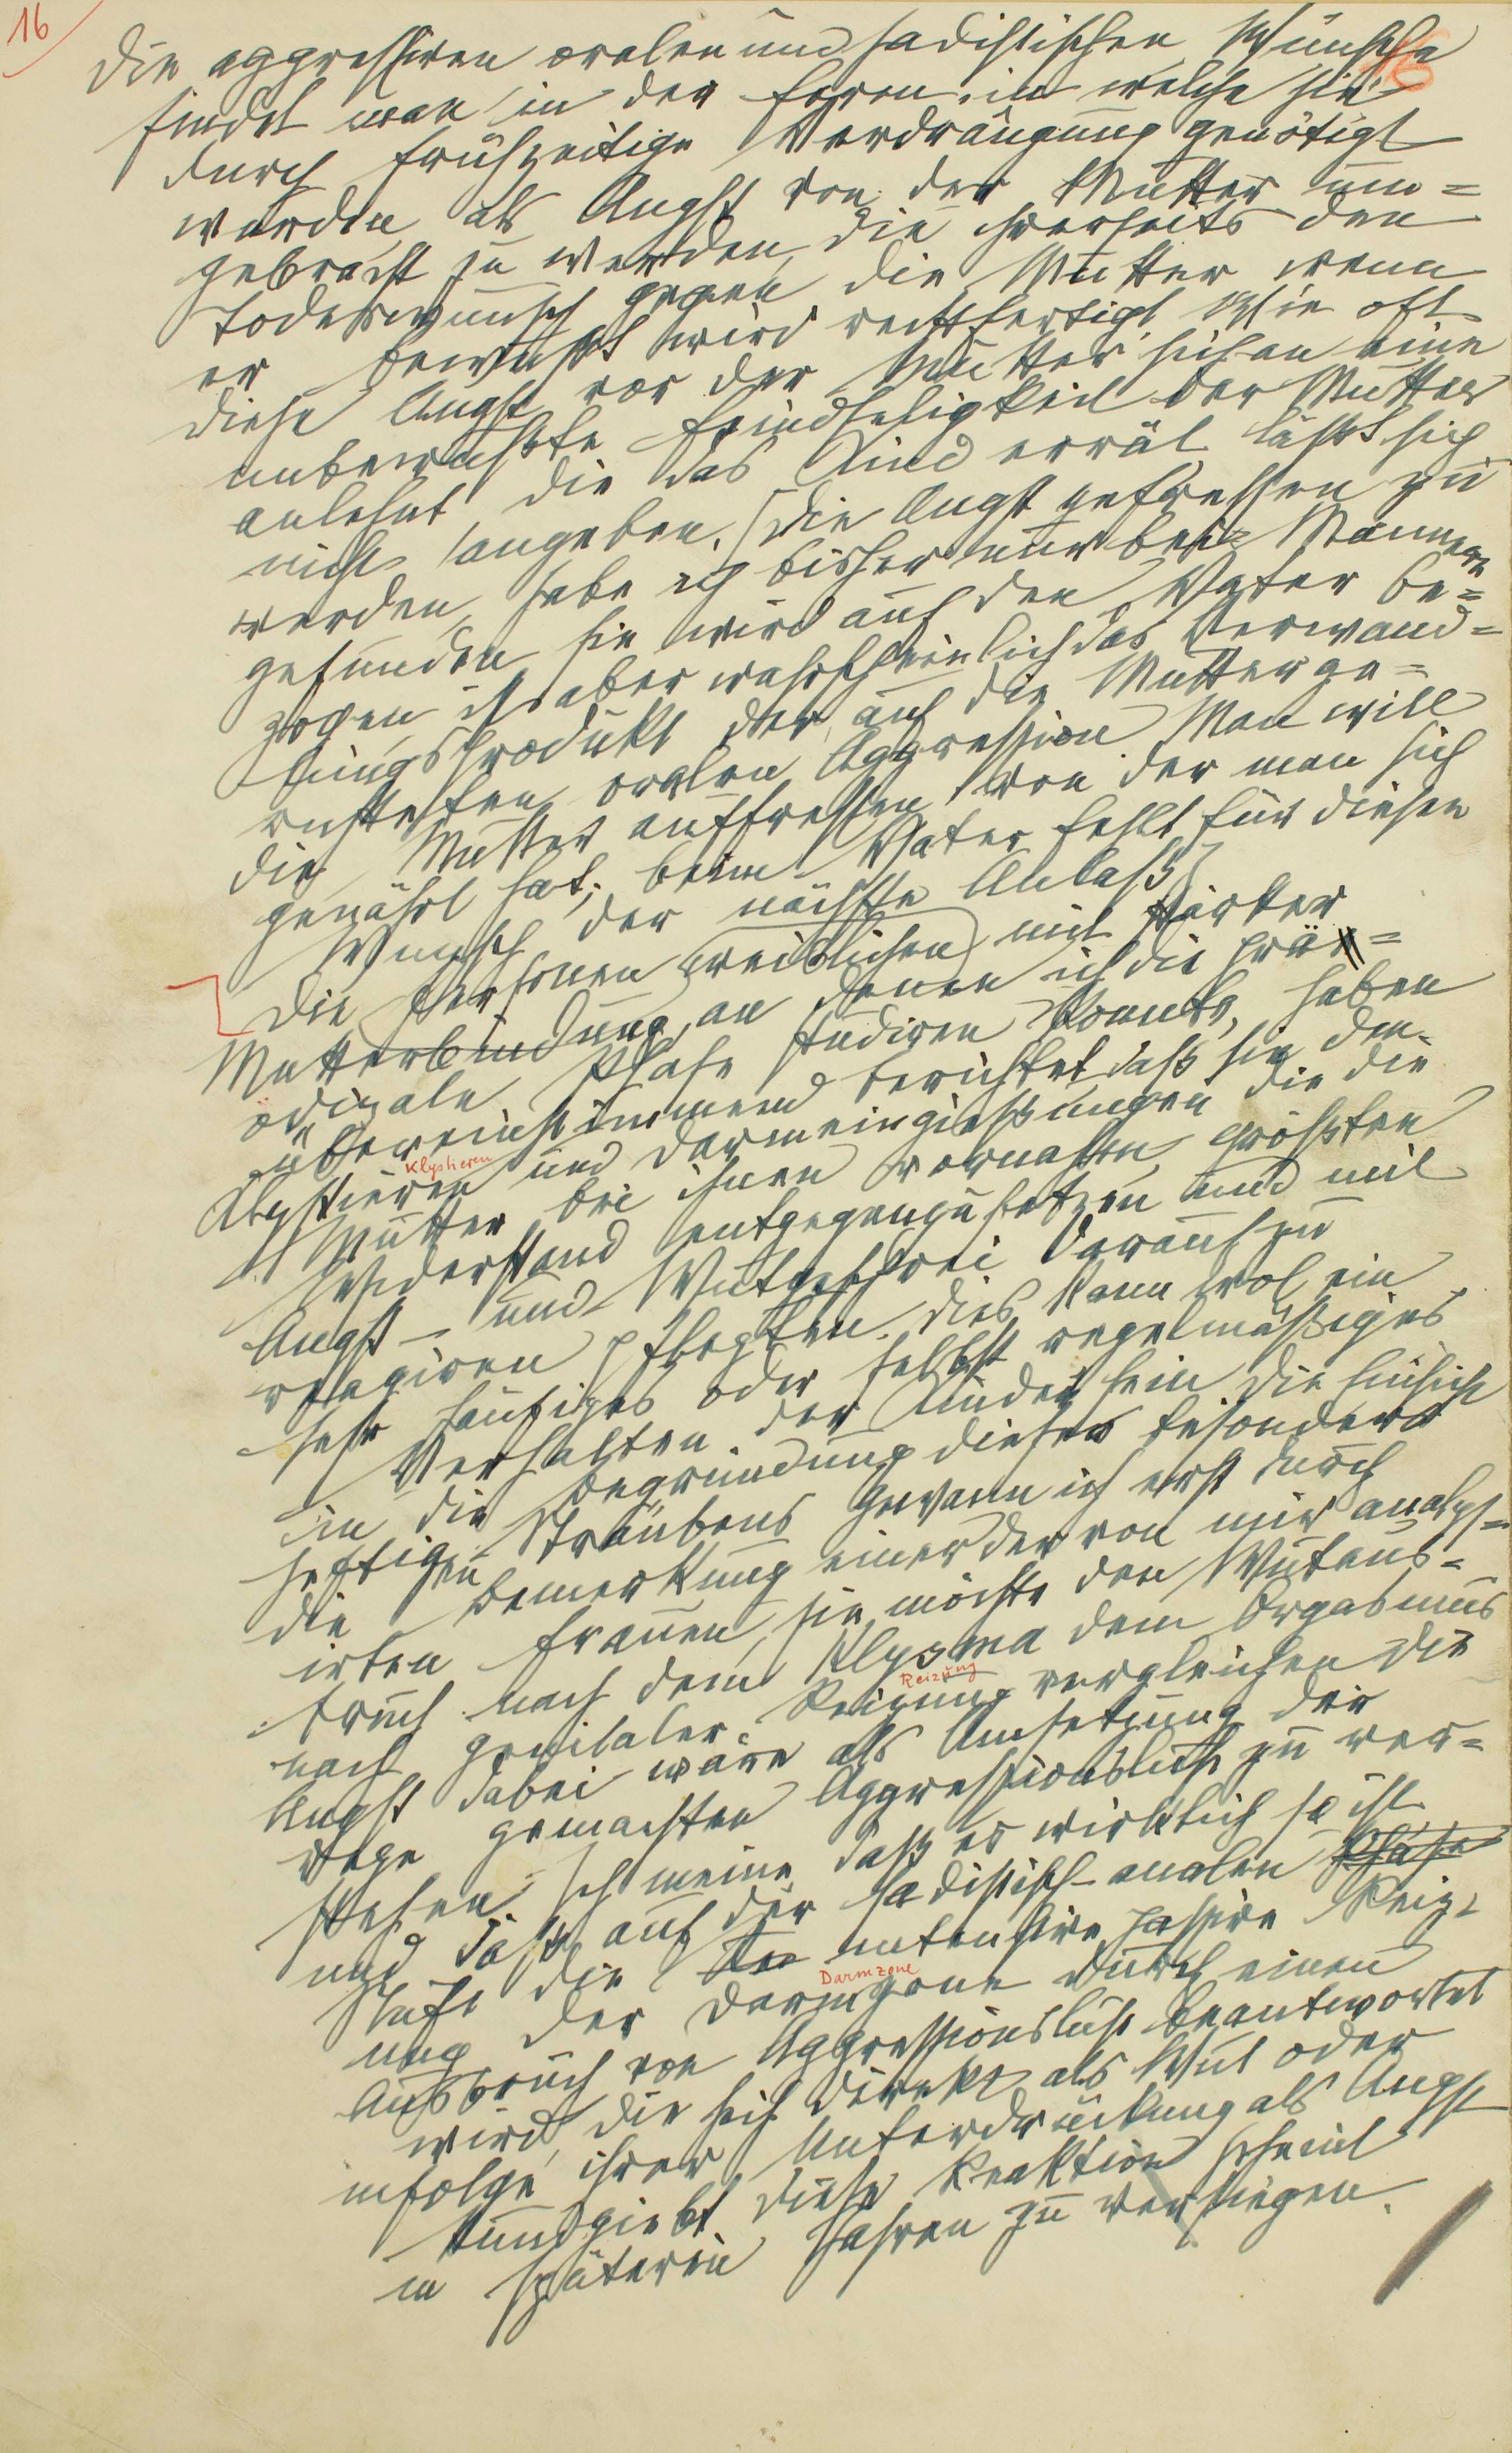 16
Die aggressiven oralen und sadistischen Wünsche
findet man in der Form, in welche sie
durch frühzeitige Verdrängung genötigt
werden, als Angst von der Mutter um=
gebracht zu werden, die ihrerseits den
Todeswunsch gegen die Mutter, wenn
er bewußt wird, rechtfertigt. Wie oft
diese Angst vor der Mutter sich an eine
unbewußte Feindseligkeit der Mutter
anlehnt, die das Kind errät, läßt sich
nicht angeben. [Die Angst gefressen zu
werden, habe ich bisher nur bei Männern
gefunden, sie wird auf den Vater be=
zogen, ist aber wahrscheinlich das Verwand=
lungsprodukt der auf die Mutter ge=
richteten oralen Aggression. Man will
die Mutter auffressen, von der man sich
genährt hat; beim Vater fehlt für diesen
Wunsch der nächste Anlaß.]
Die Personen (weiblichen) mit starker
Mutterbindung, an denen ich die prä=
ödipale Phase studiren konnte, haben
übereinstimmend berichtet, daß sie den
Klystieren
Klystieren und Darmeingießungen, die die
Mutter bei ihnen vornahm, größten
Widerstand entgegenzusetzen und mit
Angst- und Wutgeschrei darauf zu
reagiren pflegten. Dies kann wol ein
sehr häufiges oder selbst regelmäßiges
Verhalten der Kinder sein. Die Einsicht
in die Begründung dieses besonders
heftigen Sträubens gewann ich erst durch
die Bemerkung einer der von mir analys=
irten Frauen, sie möchte den Wutaus=
bruch nach dem Klysma dem Orgasmus
Reizung
nach genitaler Reizung vergleichen. Die
Angst dabei wäre als Umsetzung der
rege gemachten Aggressionslust zu ver=
stehen. Ich meine, daß es wirklich so ist
und daß auf der sadistisch-analen Phase
Stufe die intensive passive Reiz=
Darmzone
ung der Darmzone durch einen
Ausbruch von Aggressionslust beantwortet
wird, die sich direkt als Wut oder
infolge ihrer Unterdrückung als Angst
kundgiebt. Diese Reaktion scheint
in späteren Jahren zu versiegen.